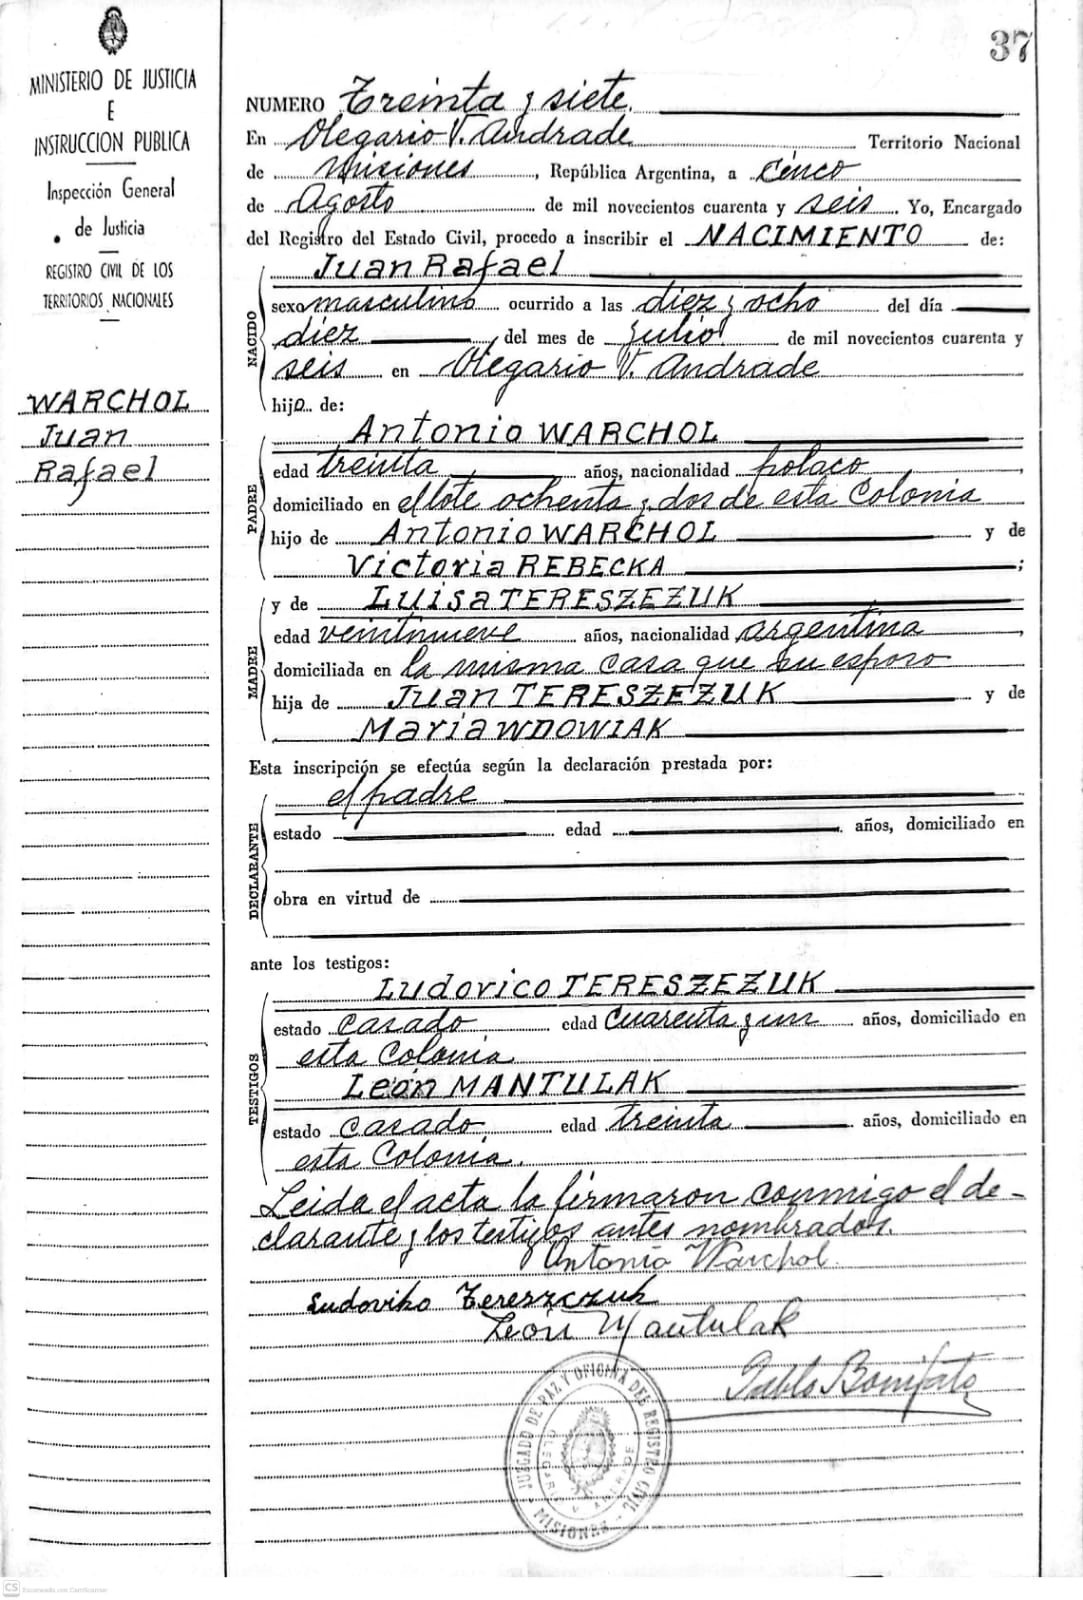 37
MINISTERIO DE JUSTICIA
E
INSTRUCCION PUBLICA
Inspección General
de Justicia
REGISTRO CIVIL DE LOS
TERRITORIOS NACIONALES
WARCHOL
Juan
Rafael
NUMERO Treinta y siete
En Olegario V. Andrade Territorio Nacional
de Misiones, República Argentina, a cinco
de Agosto de mil novecientos cuarenta y seis. Yo, Encargado
del Registro del Estado Civil, procedo a inscribir el NACIMIENTO de:
NACIDO
Juan Rafael
sexo masculino ocurrido a las diez y ocho del día
diez del mes de Julio de mil novecientos cuarenta y
seis en Olegario V. Andrade
hijo de:
PADRE
Antonio WARCHOL
edad treinta años, nacionalidad polaco,
domiciliado en el lote ochenta y dos de esta Colonia
hijo de Antonio WARCHOL y de
Victoria REBECKA;
MADRE
y de Luisa TERESZEZUK
edad veintinueve años, nacionalidad argentina,
domiciliada en la misma casa que su esposo
hija de Juan TERESZEZUK y de
Maria WDOWIAK
Esta inscripción se efectúa según la declaración prestada por:
DECLARANTE
el padre
estado edad años, domiciliado en
obra en virtud de
ante los testigos:
TESTIGOS
Ludovico TERESZEZUK
estado casado edad cuarenta y un años, domiciliado en
esta Colonia
León MANTULAK
estado casado, edad treinta años, domiciliado en
esta Colonia.
Leida el acta la firmaron conmigo el de-
clarante y los testigos antes nombrados.
Antonio Warchol.
Ludoviko Tereszczuk
León Mantulak
Pablo Bonifato
JUZGADO DE PAZ Y OFICINA DEL REGISTRO CIVIL
OLEGARIO V. ANDRADE
MISIONES
CS Escaneado con CamScanner